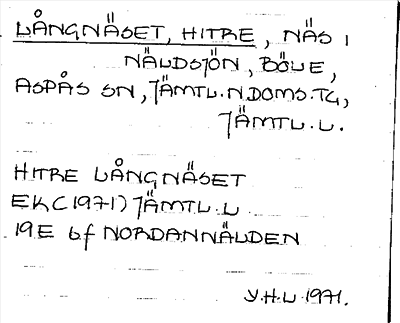 LÅNGNÄSET, HITRE, NÄS I
NÄLDSJÖN, BÖLE,
ASPÅS SN, JÄMTL.N.DOMS.TG,
JÄMTL.L.
HITRE LÅNGNÄSET
EK(1971) JÄMTL.L
19E 6f NORDANNÄLDEN
Y.H.L 1971.